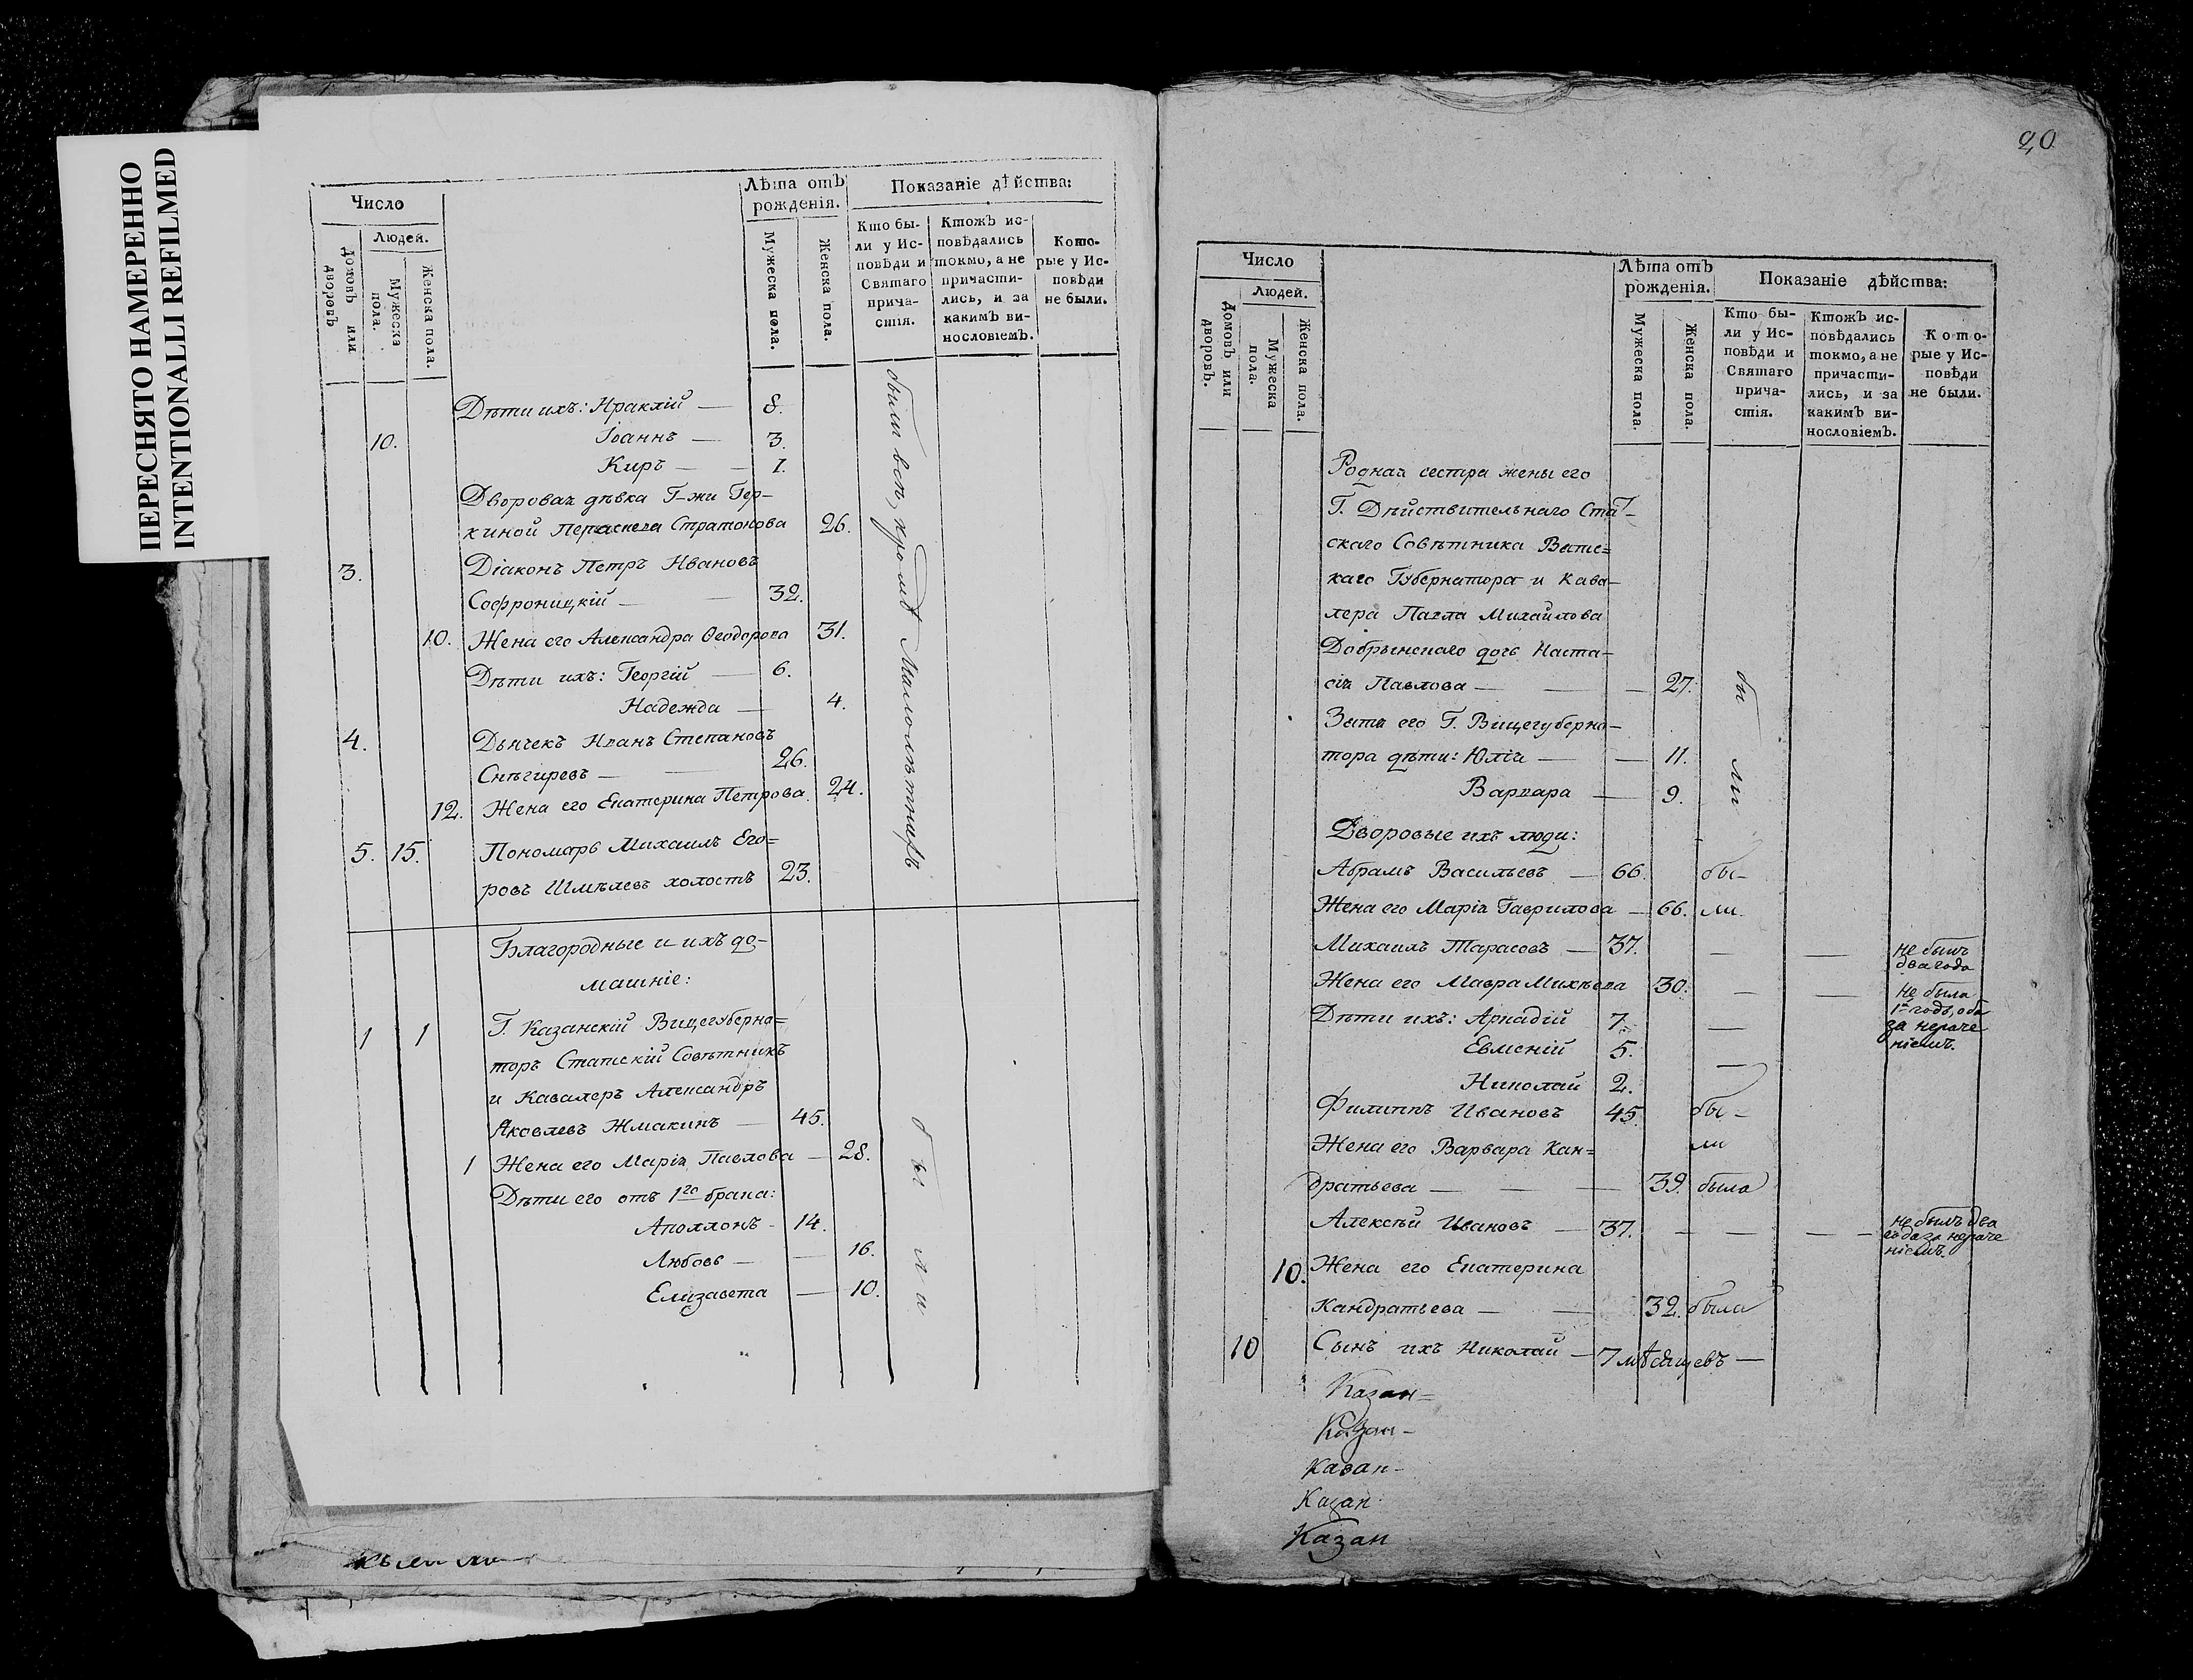 ПЕРЕСНЯТО НАМЕРЕННО
INTENTIONALLI REFILMED
Число
Людей.
Домовъ или дворовъ
Мужеска пола.
Женска пола.
Лѣта отъ рожденія.
Мужеска пола.
Женска пола.
Показаніе дѣйства:
Кто бы-
ли у Ис-
повѣди и
Святаго
прича-
стія.
Ктожъ ис-
повѣдались
токмо, а не
причасти-
лись, и за
какимъ ви-
нословіемъ.
Кото-
рые у Ис-
повѣди
не были.
Дѣти ихъ: Ираклій — 8.
10. Іоаннъ — 3.
Киръ — — 1.
Дворовая дѣвка Г-жи Гер-
киной Параскева Стратонова 26.
3. Діаконъ Петръ Ивановъ
Софроницкій — — 32.
10. Жена его Александра Ѳеодорова 31.
Дѣти ихъ: Георгій — 6.
Надежда — 4.
4. Дьячекъ Иванъ Степановъ
Снѣгиревъ — — 26.
12. Жена его Екатерина Петрова. 24.
5. 15. Пономарь Михаилъ Его=
ровъ Шмѣлевъ холостъ 23.
были всѣ, кромѣ малолѣтнихъ
Благородные и ихъ до-
машніе:
1 1 Г. Казанскій Вицегуберна=
торъ Статскій Совѣтникъ
и Кавалеръ Александръ
Яковлевъ Жмакинъ — 45.
1 Жена его Марія Павлова — 28.
Дѣти его отъ 1го брака:
Аполлонъ - 14.
Любовь — — 16.
Елизавета — 10.
были
20
Число
Людей.
Домовъ или дворовъ.
Мужеска пола.
Женска пола.
Лѣта отъ рожденія.
Мужеска пола.
Женска пола.
Показаніе дѣйства:
Кто бы-
ли у Ис-
повѣди и
Святаго
прича-
стія.
Ктожъ ис-
повѣдались
токмо, а не
причасти-
лись, и за
какимъ ви-
нословіемъ.
Кото-
рые у Ис-
повѣди
не были.
Родная сестра жены его
Г. Дѣйствительнаго Стат-
скаго Совѣтника Вятс=
каго Губернатора и Кава-
лера Павла Михайлова
Добрынскаго дочь Наста-
сія Павлова — — — 27.
Зятя его Г. Вицегуберна-
тора дѣти: Юлія — — 11.
Варвара — 9.
были
Дворовые ихъ люди:
Абрамъ Васильевъ — 66. бы-
Жена его Марія Гаврилова — 66. ли.
Михаилъ Тарасовъ — 37. — — не былъ
два года
Жена его Мавра Михѣева 30. — — не была
1н годъ, оба
за нераче
ніемъ.
Дѣти ихъ: Аркадій 7. —
Евмений 5. —
Николай 2.
Филиппъ Ивановъ 45. бы-
Жена его Варвара Кан= ли
дратьева — — — 39. была
Алексѣй Ивановъ — 37. — — — — не былъ два
года за нераче
ніемъ.
10. Жена его Екатерина
Кандратьева — — 32. была
10 Сынъ ихъ Николай — 7 мѣсяцевъ —
Казан=
Казан-
Казан-
Казан
Казан